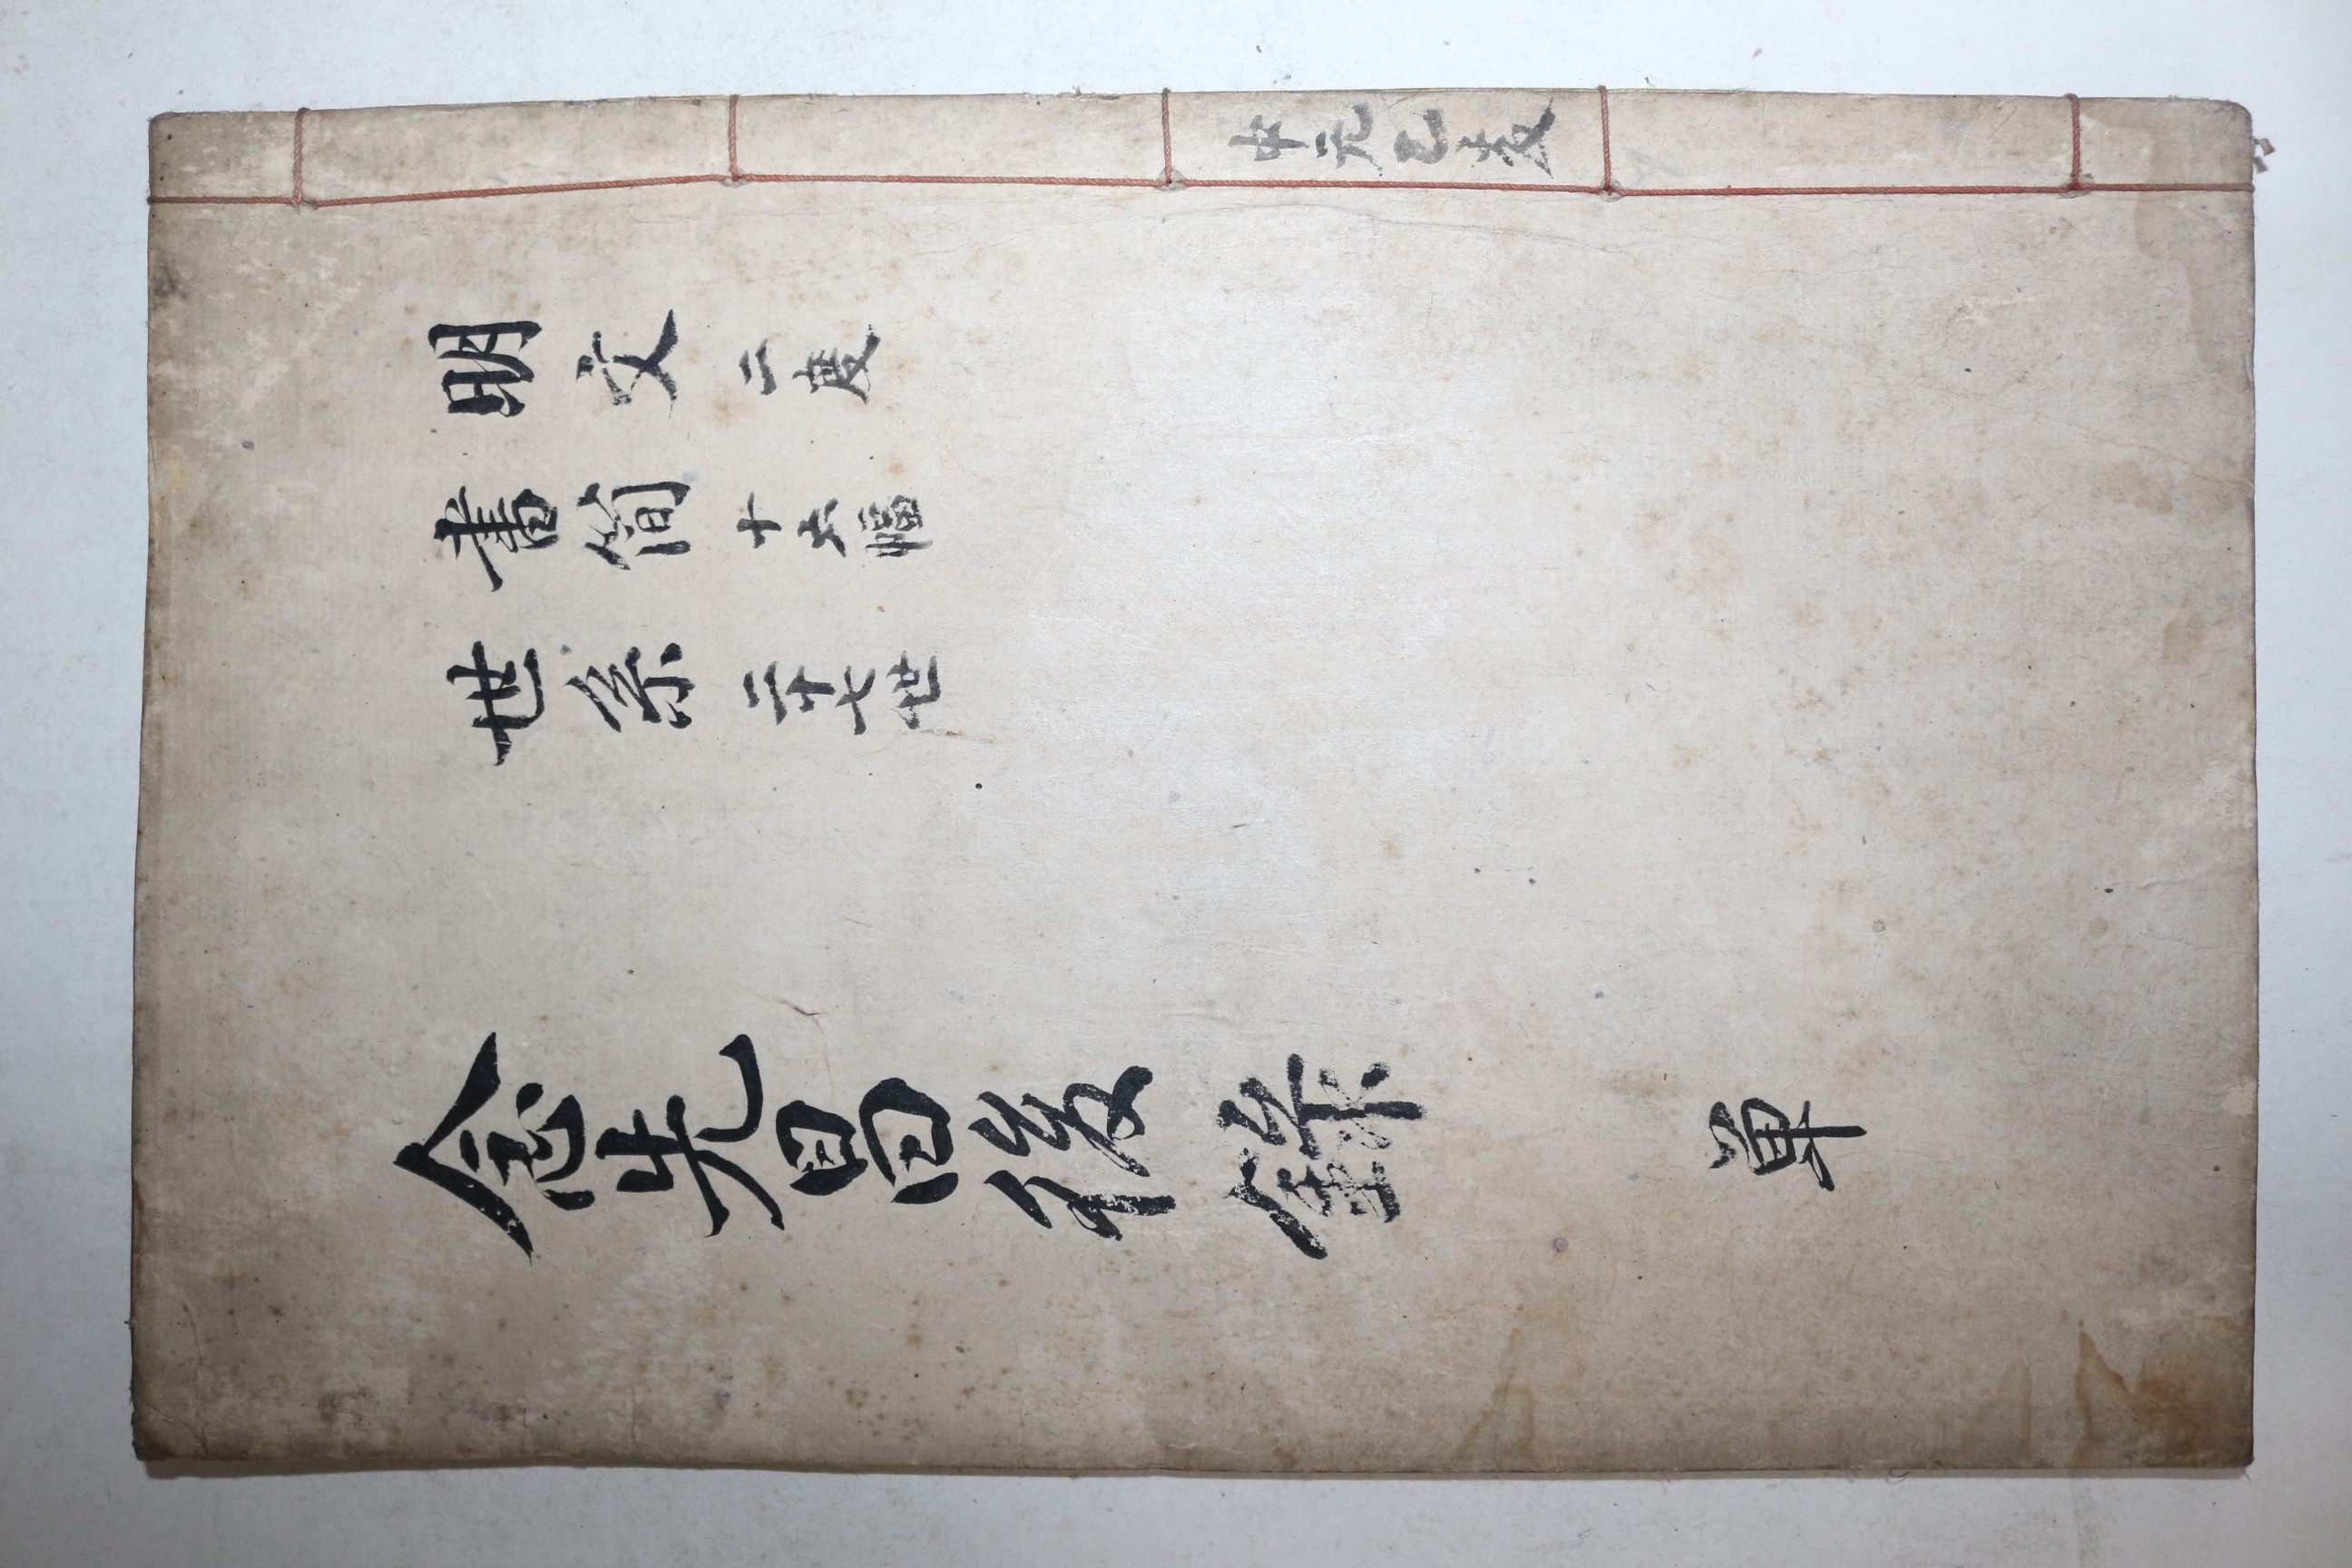 中元乙亥
明文 二度
書簡 十六幅
世系 二十七世
念先昌後錄 单